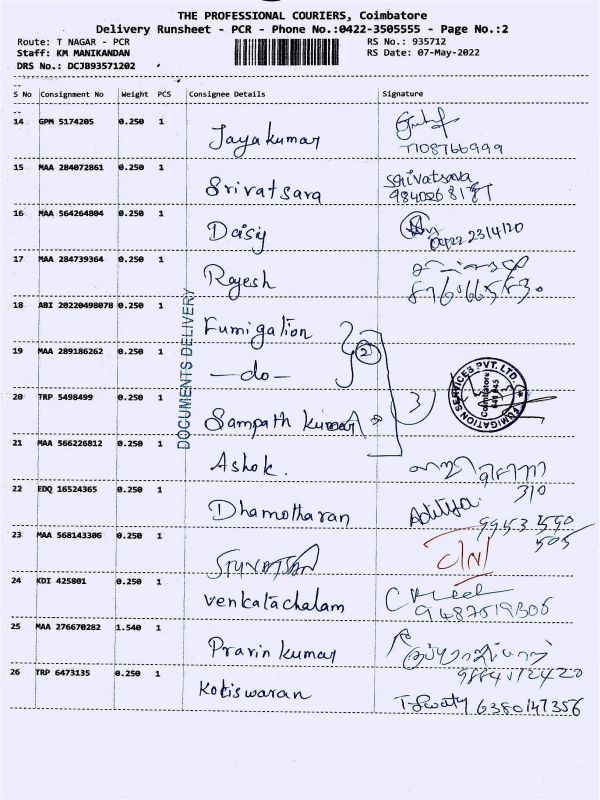 THE PROFESSIONAL COURIERS, Coimbatore
Delivery Runsheet - PCR - Phone No.:0422-3505555 - Page No.:2
Route: T NAGAR - PCR RS No.: 935712
Staff: KM MANIKANDAN RS Date: 07-May-2022
DRS No.: DCJB93571202
S No Consignment No Weight PCS Consignee Details Signature
14 GPM 5174205 0.250 1 Jayakumar
7708766999
15 MAA 284072861 0.250 1 Srivatsara Srivatsava
16 MAA 564264804 0.250 1 Daisy 0422 2314120
17 MAA 284739364 0.250 1 Rajesh
18 ABI 20220498078 0.250 1 Fumigation
DOCUMENTS DELIVERY
19 MAA 289186262 0.250 1 —do— 2
20 TRP 5498499 0.250 1 Sampath Kumar 3
FUMIGATION SERVICES PVT. LTD. Coimbatore
21 MAA 566226812 0.250 1 Ashok.
310
22 EDQ 16524365 0.250 1 Dhamotharan Aditya.
99531590
505
23 MAA 568143306 0.250 1
24 KDI 425801 0.250 1 Venkatachalam
9487519306
25 MAA 276670282 1.540 1 Pravin Kumar
9884012420
26 TRP 6473135 0.250 1 Kotiswaran T. Swaty 6380147356